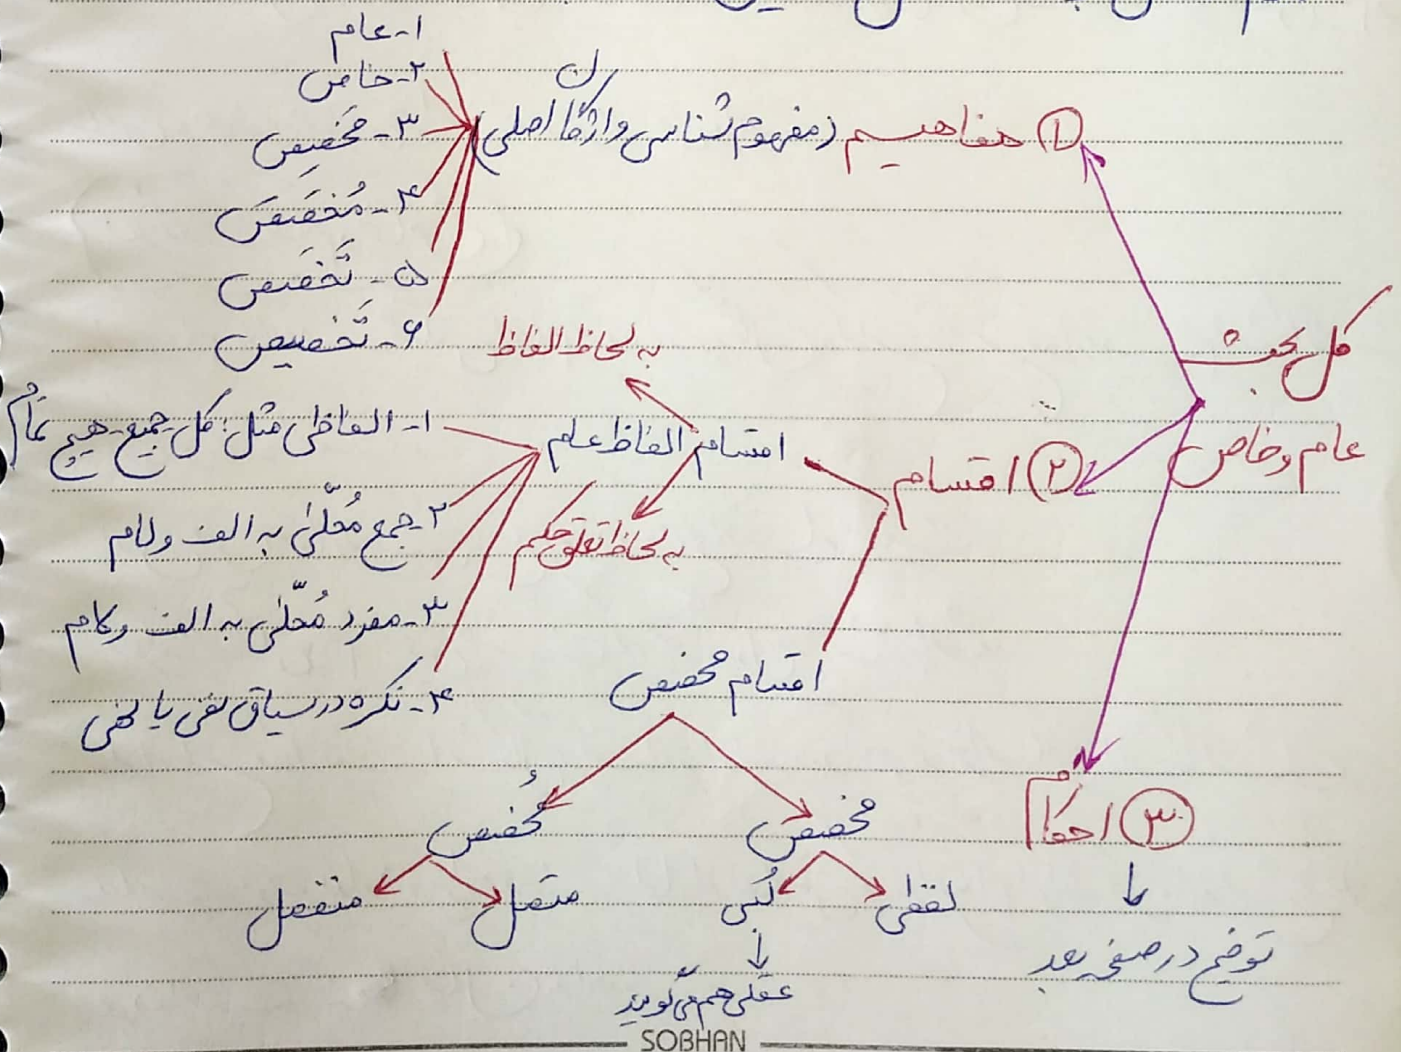 کل بحث
عام و خاص
① مفاهیم (مفهوم شناسی واژگان اصلی)
۱- عام
۲- خاص
۳- مخصِص
۴- مُخَصَص
۵- تَخَصُص
۶- تَخصیص
② اقسام
اقسام الفاظ عام
به لحاظ الفاظ
به لحاظ تعلق حکم
۱- الفاظی مثل: کل جمیع- هیچ تمام
۲- جمع مُحلّیٰ به الف و لام
۳- مفرد مُحلّیٰ به الف و لام
۴- نکره در سیاق نفی یا نهی
اقسام مخصص
مخصص
لفظی
لُبّی
عقلی هم می‌گویند
مُخصص
متصل
منفصل
③ احکام
توضیح در صفحه بعد
SOBHAN